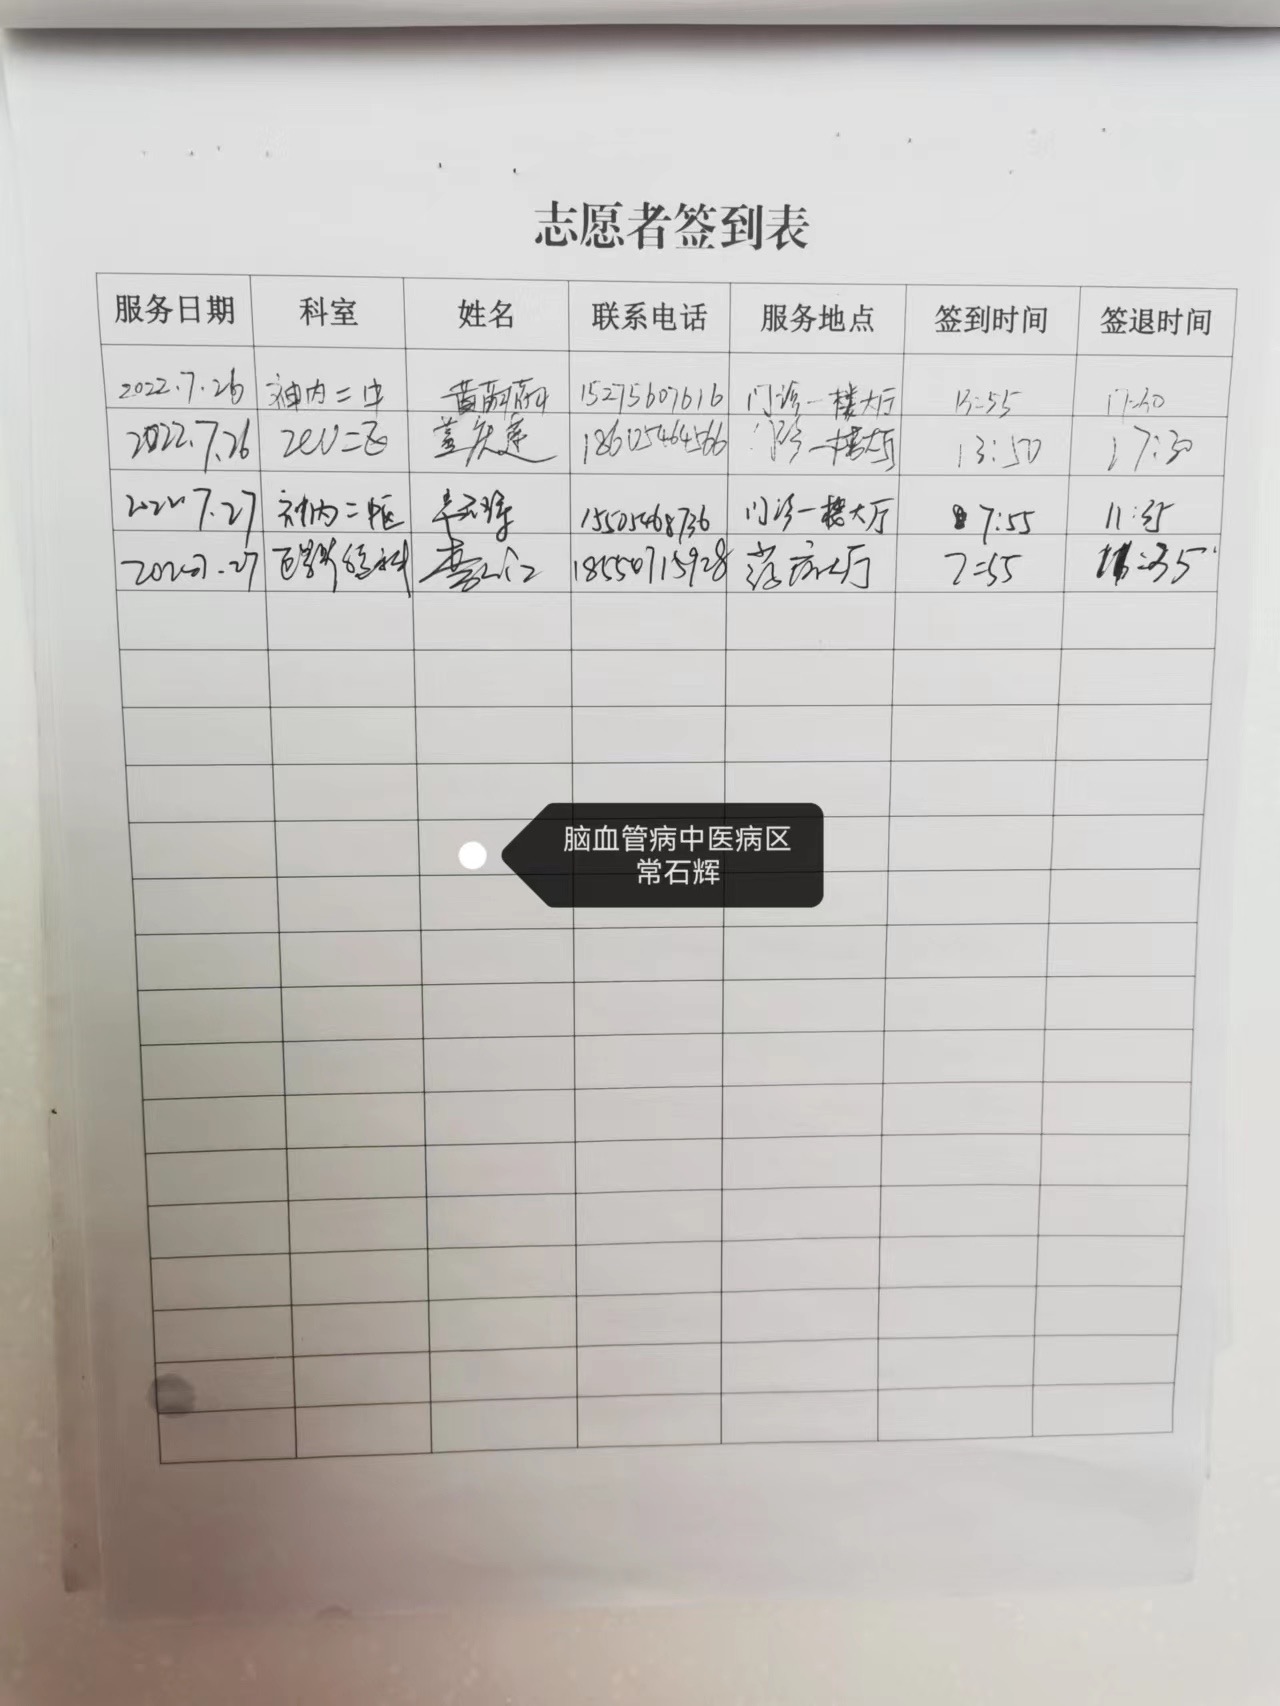 志愿者签到表
服务日期 科室 姓名 联系电话 服务地点 签到时间 签退时间
2022.7.26 神内二中 15275607616 门诊一楼大厅 13:55 17:30
2022.7.26 ICU二区 盖庆莲 门诊一楼大厅 13:50 17:30
2022 7.27 神内二中区 15505468736 门诊一楼大厅 7:55 11:35
18550715928 药房大厅 7:55
脑血管病中医病区
常石辉